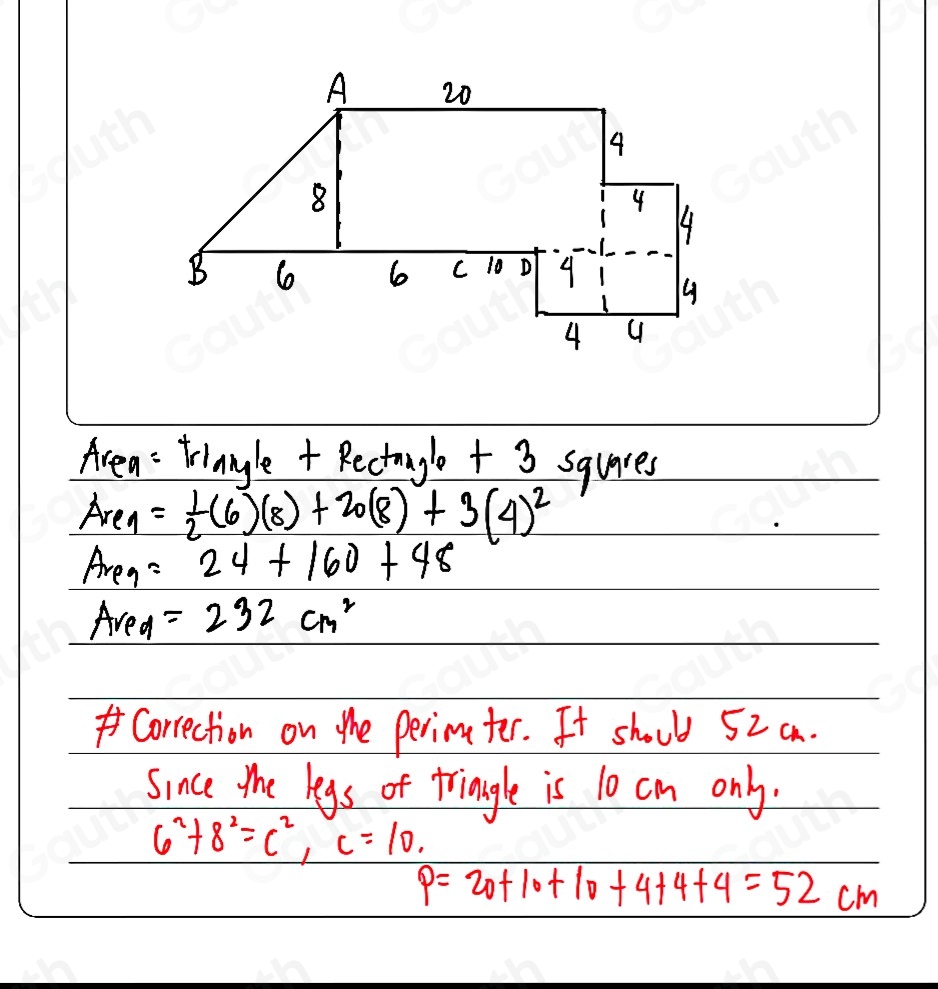 A 20
4
8 4 4
B 6 6 C 10 D 4 4
4 4
Area = triangle + Rectangle + 3 squares
Area = 1/2(6)(8) + 20(8) + 3(4)²
Area = 24 + 160 + 48
Area = 232 cm²
# Correction on the perimeter. It should 52 cm.
Since the legs of triangle is 10 cm only.
6² + 8² = c², c = 10.
P = 20 + 10 + 10 + 4 + 4 + 4 = 52 cm
Gauth